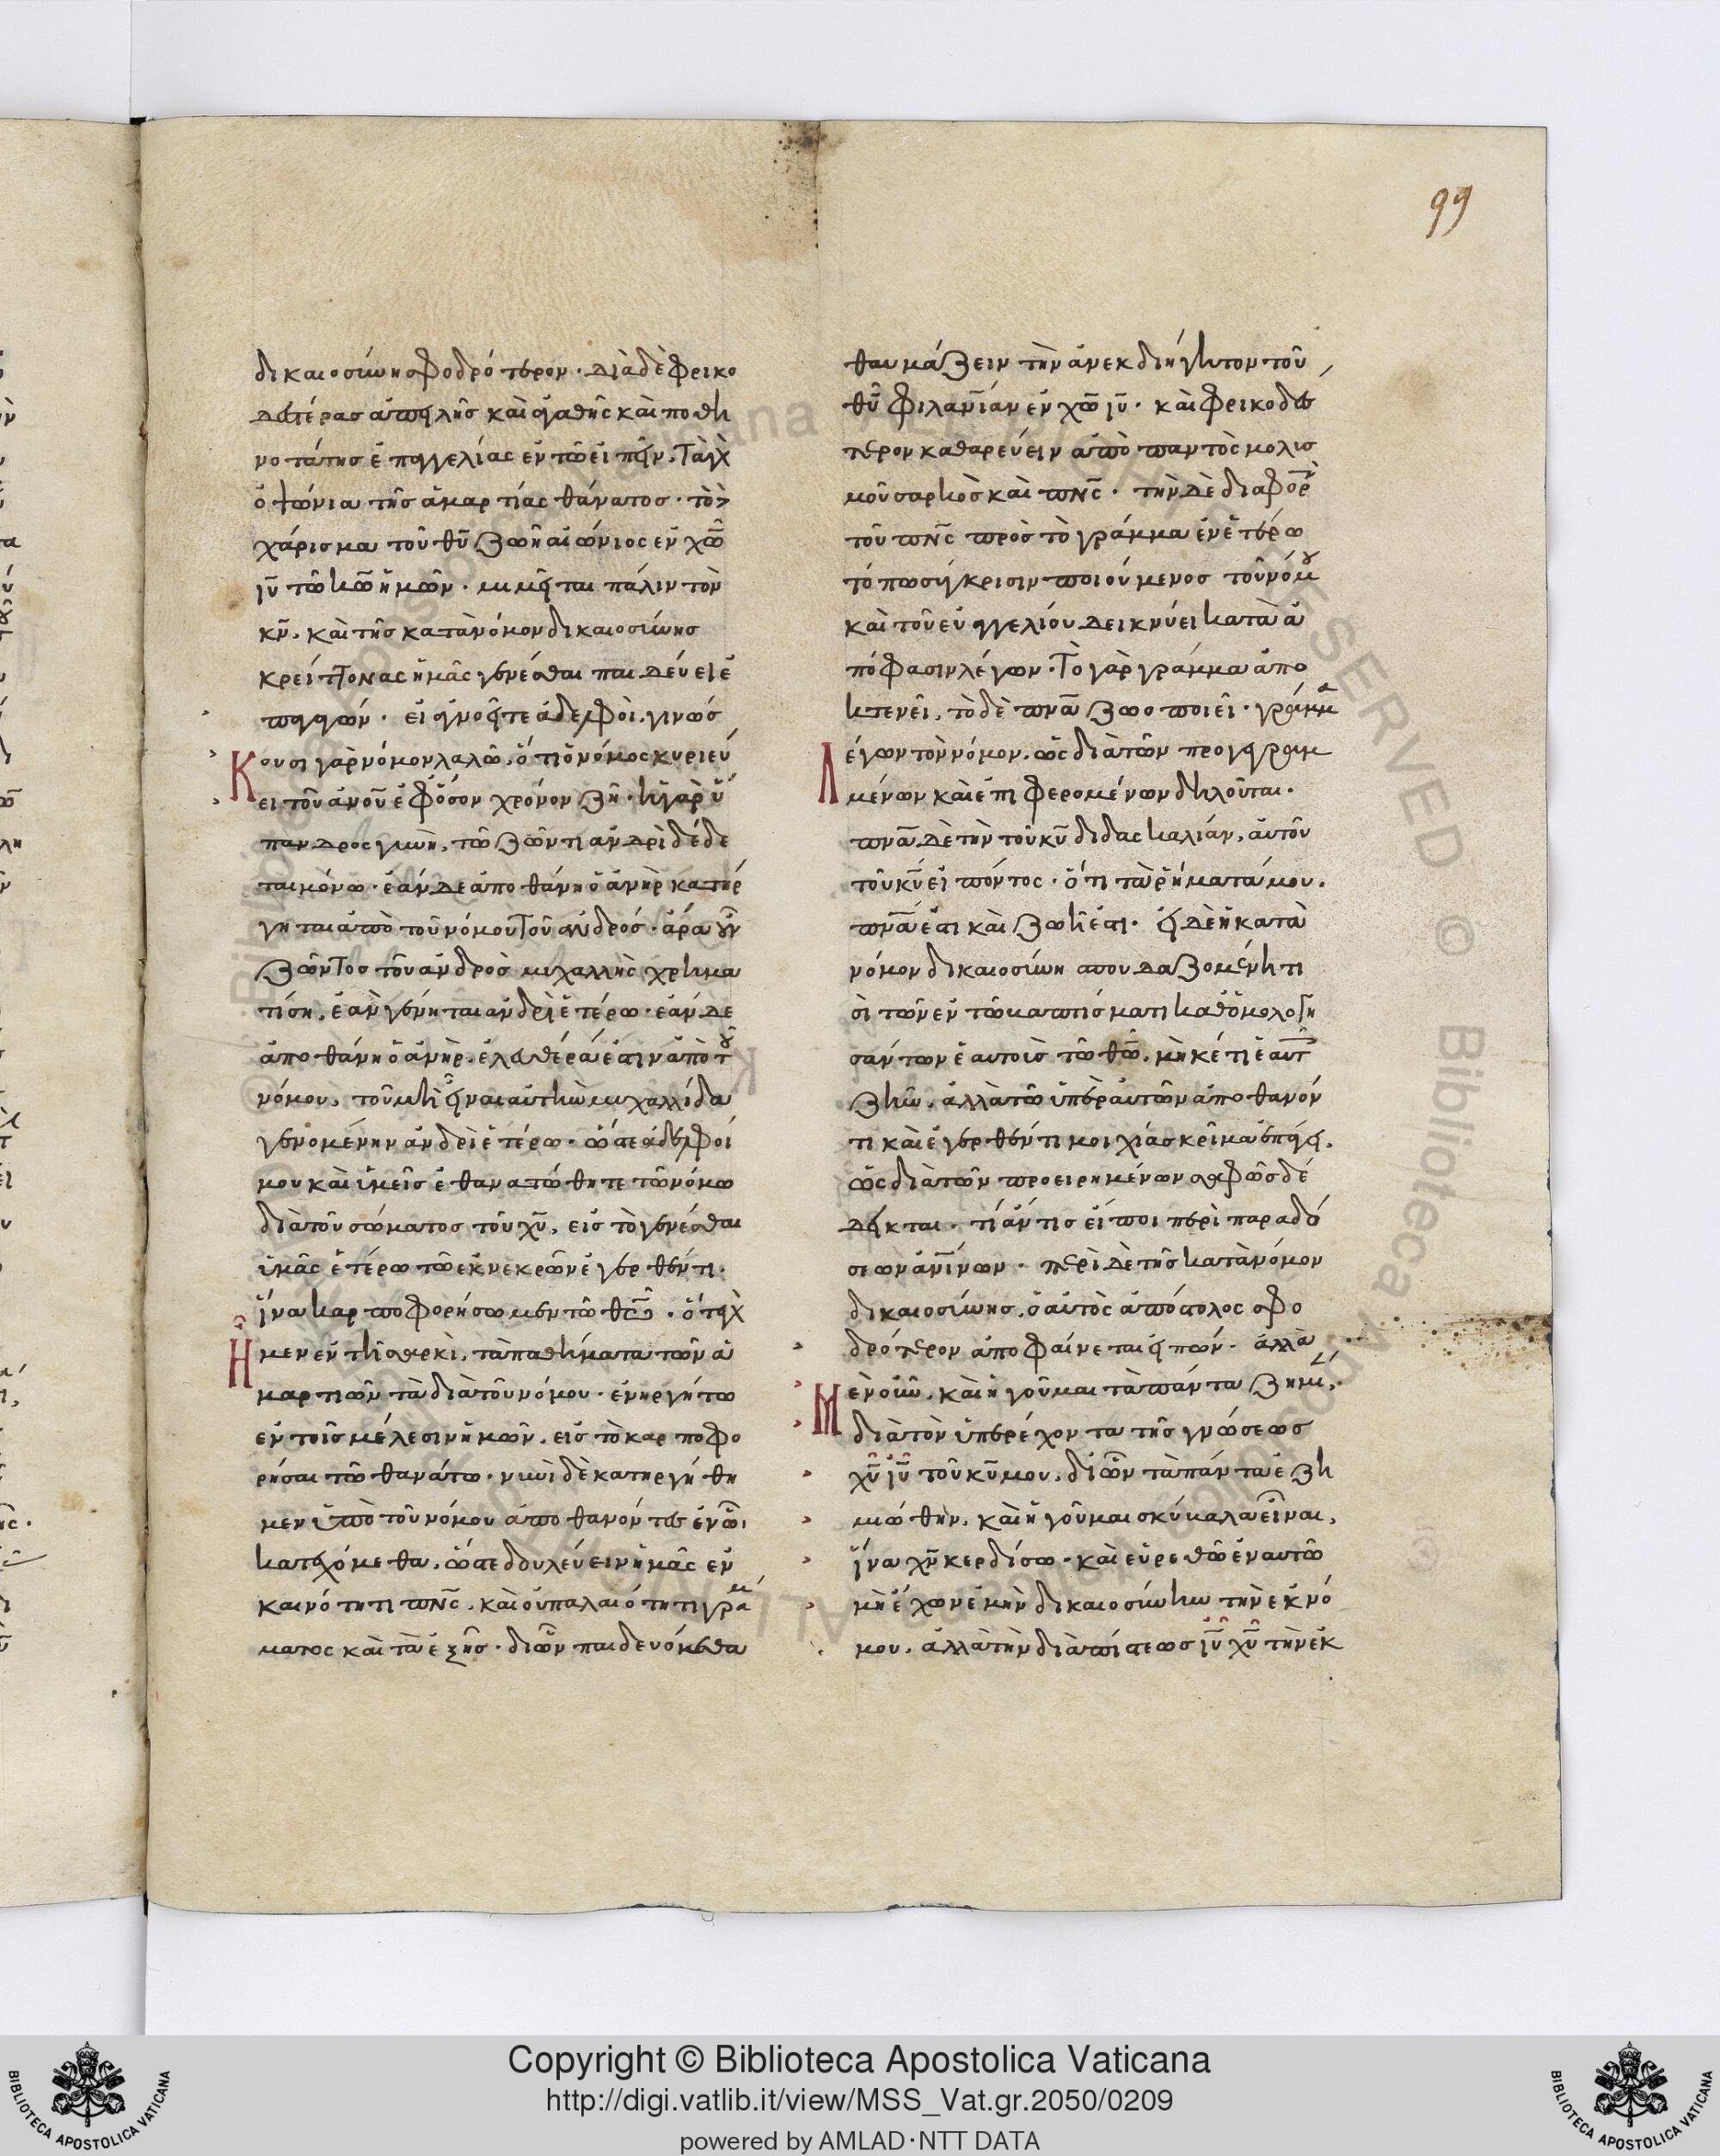 99
δικαιοσύνησφοδρότερον· διὰ δὲ φρικο
δεστέρασ ἀπειλῆς καὶ ἀγαθῆς καὶ ποθη
νοτάτησ ἐπαγγελίας ἐν τῶ εἰπεῖν. Τὰ γὰρ
ὀψώνια τῆς ἁμαρτίας θάνατοσ· τὸ
χάρισμα τοῦ θῦ ζωὴ αἰώνιος ἐν χῶ
ιῦ τῶ κῶ ἡμῶν· μιμεῖται πάλιν τὸν
κν, καὶ τῆσ κατὰ νόμον δικαιοσύνησ
κρείττονας ἡμᾶς γενέσθαι παιδεύει ἐ
παγαγών· εἰ ἀγνοεῖτε ἀδελφοὶ, γινώσ
κουσι γὰρ νόμον λαλῶ, ὅτι ὁ νόμος κυριεύ
ει τοῦ ἀνοῦ ἐφόσον χρόνον ζῆ· ἡ γὰρ ὕ
πανδρος γυνὴ, τῶ ζῶντι ἀνδρὶ δέδε
ται μόνω· ἐὰν δε ἀποθάνη ὁ ἀνὴρ κατήρ
γηται ἀπὸ τοῦ νόμου τοῦ ἀνδρόσ· ἄρα οὖν
ζῶντοσ τοῦ ἀνδρὸσ μιχαλλὶς χρημα
τίση, ἐὰν γένηται ἀνδρὶ ἑτέρω· ἐὰν δε
ἀποθάνη ὁ ἀνὴρ, ἐλευθέρα ἐστιν ἀπὸ τοῦ
νόμου, τοῦ μὴ εἶναι αὐτὴν μιχαλλίδα
γενομένην ἀνδρὶ ἑτέρω· ὥστε ἀδελφοί
μου καὶ ὑμεῖσ ἐθανατώθητε τῶ νόμω
διὰ τοῦ σώματοσ τοῦ χῦ, εἰσ τὸ γενέσθαι
ὑμᾶς ἑτέρω τῶ ἐκ νεκρῶν ἐγερθέντι·
ἵνα καρποφορήσωμεν τῶ θῶ· ὅτε γὰρ
ἦμεν ἐν τῆ σαρκὶ, τὰ παθήματα τῶν ἁ
μαρτιῶν τὰ διὰ τοῦ νόμου· ἐνηργήτω
ἐν τοῖσ μέλεσιν ἡμῶν, εἰσ τὸ καρποφο
ρῆσαι τῶ θανάτω· νυνὶ δὲ κατηργήθη
μεν ἀπὸ τοῦ νόμου ἀποθανόντεσ ἐν ὧι
κατειχόμεθα, ὥστε δουλεύειν ἡμᾶς ἐν
καινότητι πνς, καὶ οὐ παλαιότητι γράμ
ματος καὶ τὰ ἑξῆσ· διὧν παιδευόμεθα
θαυμάζειν τὴν ἀνεκδιήγητον τοῦ
θῦ φιλανίαν ἐν χῶ ιῦ· καὶ φρικοδεσ
τερον καθαρεύειν ἀπὸ παντὸς μολυσ
μοῦ σαρκὸσ καὶ πνς· τὴν δὲ διαφορὰν
τοῦ πνς πρὸσ τὸ γράμμα ἐν ἑτέρω
τόπω σύγκρισιν ποιούμενοσ τοῦ νόμου
καὶ τοῦ εὐαγγελίου δεικνύει κατὰ ἀ
πόφασιν λέγων· Τὸ γὰρ γράμμα ἀπο
κτενεῖ, τὸ δὲ πνα ζωοποιεῖ· γράμμα
λέγων τὸν νόμον, ὡς διὰ τῶν προγεγραμ
μένων καὶ ἐπιφερομένων δηλοῦται·
πνα δὲ τὴν τοῦ κῦ διδασκαλίαν, αὐτοῦ
τοῦ κῦ εἰπόντος· ὅτι τὰ ῥήματά μου,
πνα ἐστι καὶ ζωή ἐστι· εἰ δὲ ἡ κατὰ
νόμον δικαιοσύνη σπουδαζομένη τι
σὶ τῶν ἐν τῶ βαπτίσματι καθομολογη
σάντων ἑαυτοὶσ τῶ θῶ, μηκέτι ἑαυτοῖς
ζῆν, ἀλλὰ τῶ ὑπὲρ αὐτῶν ἀποθανόν
τι καὶ ἐγερθέντι μοιχίασ κρῖμα ἐπάγει,
ὡς διὰ τῶν προειρημένων σαφῶσ δέ
δεικται· τί ἄν τισ εἴποι περὶ παραδό
σεων ἀνίνων· περὶ δὲ τῆσ κατὰ νόμον
δικαιοσύνησ, ὁ αὐτὸς ἀπόστολος σφο
δρότερον ἀποφαίνεται εἰπών· ἀλλὰ
μὲν οὖν, καὶ ἡγοῦμαι τὰ πάντα ζημί,
διὰ τὸν ὑπερέχοντα τῆς γνώσεωσ
χῦ ιῦ τοῦ κῦ μου, διὧν τὰ πάντα ἐζη
μιώθην, καὶ ἡγοῦμαι σκύβαλα εἶναι,
ἵνα χν κερδίσω· καὶ εὑρεθῶ ἐν αυτῶ
μὴ ἔχων ἐμὴν δικαιοσύνην τὴν ἐκ νό
μου, ἀλλὰ τὴν διὰ πίστεωσ ιῦ χῦ τὴν ἐκ
Copyright © Biblioteca Apostolica Vaticana
http://digi.vatlib.it/view/MSS_Vat.gr.2050/0209
powered by AMLAD·NTT DATA
BIBLIOTECA APOSTOLICA VATICANA
BIBLIOTECA APOSTOLICA VATICANA